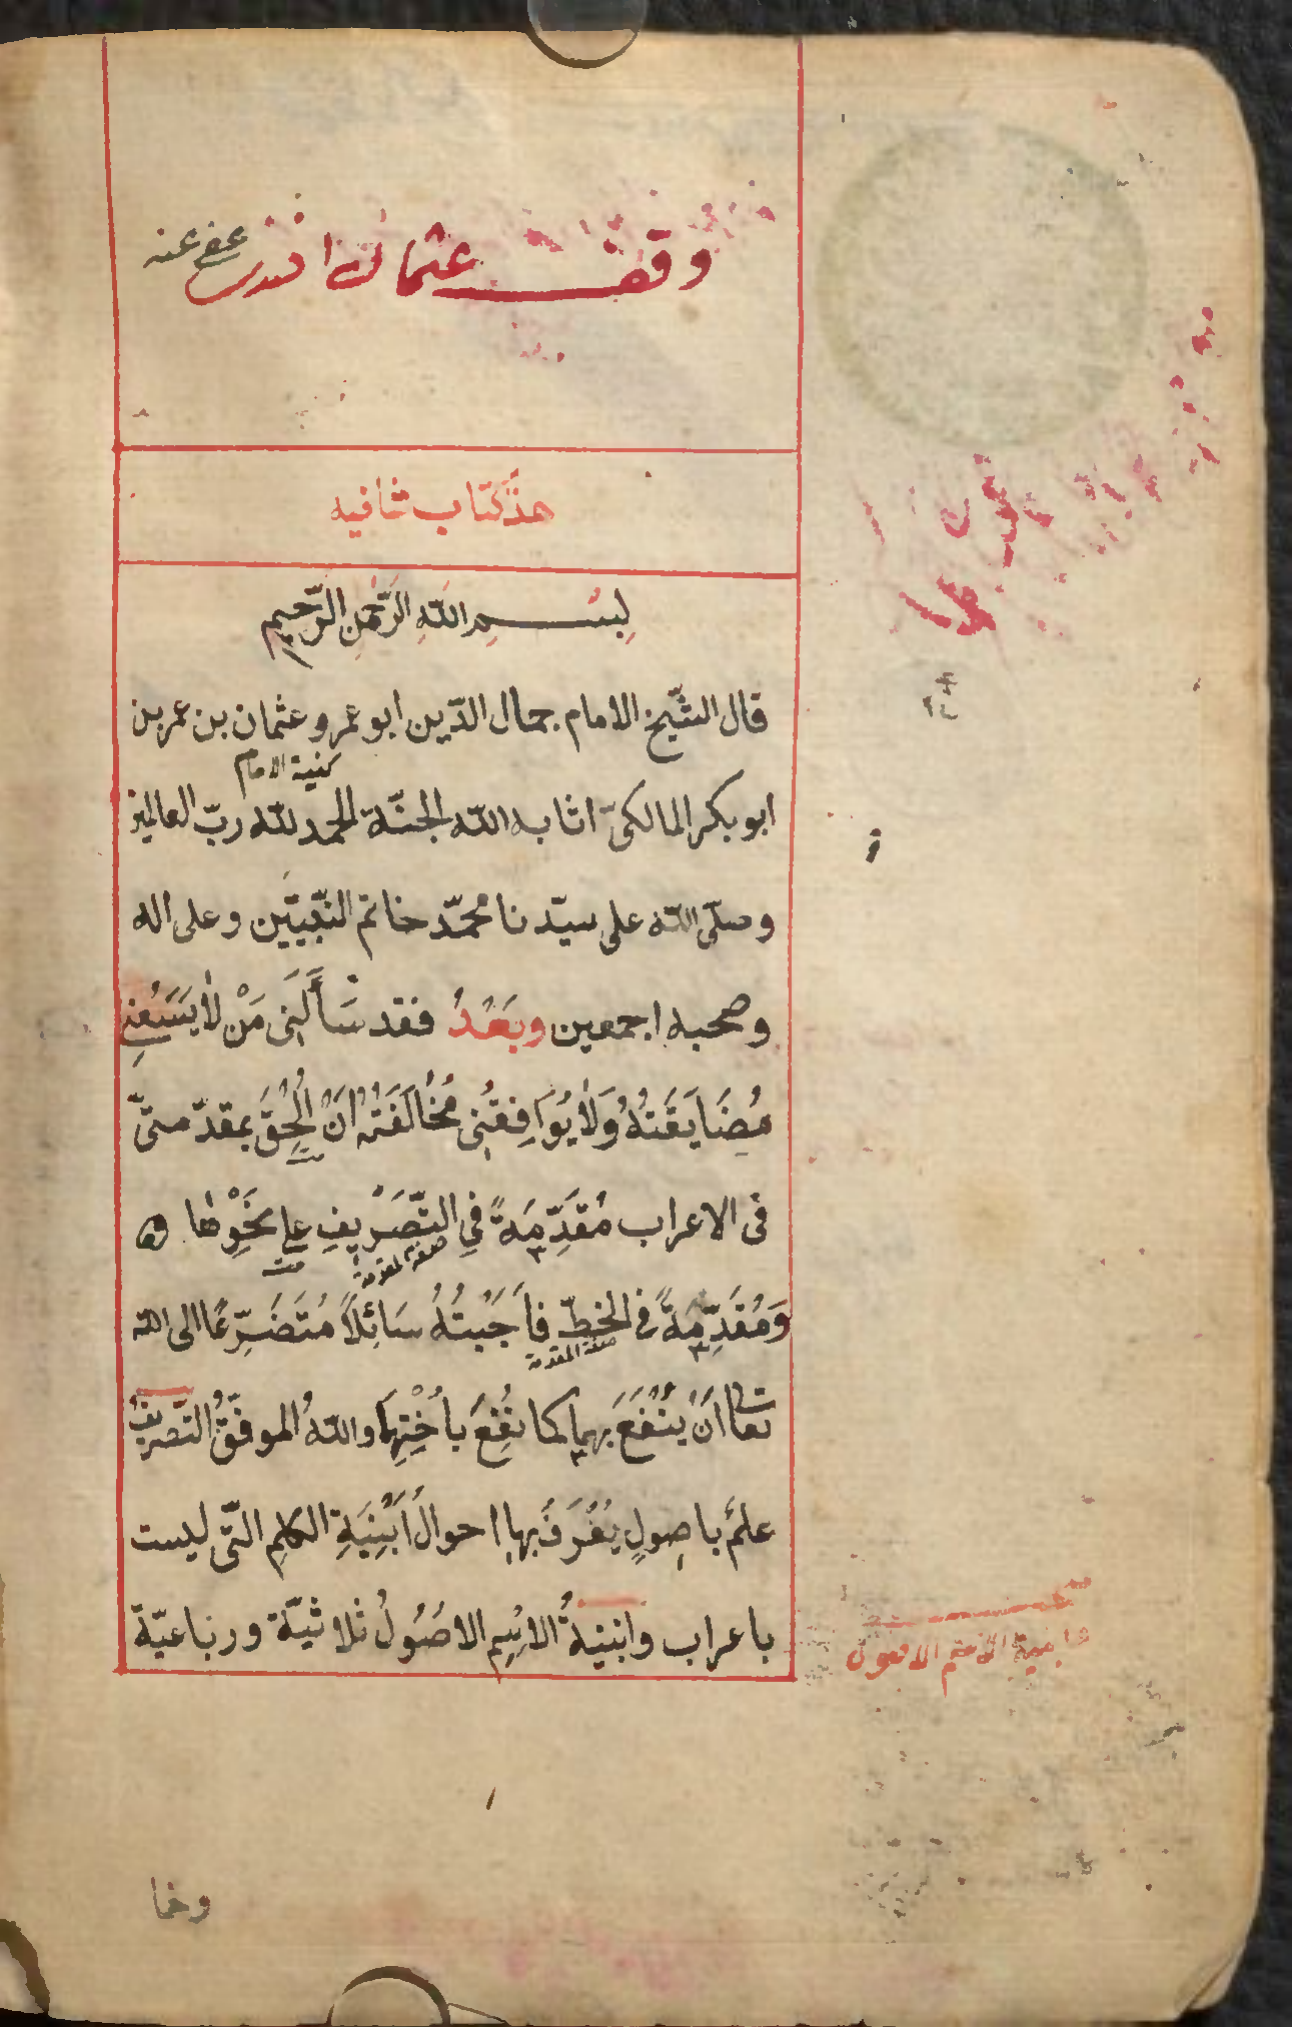 وقف عثمان افندى عفى عنه
هذكتاب شافيه
بِسْمِ اللّهِ الرَّحْمٰنِ الرَّحِيمِ
قال الشّيخ الامام جمال الدّين ابو عمرو عثمان بن عمر بن
كنية الامام
ابو بكر المالكىّ اثابه اللّه الجنّة الحمد للّه ربّ العالمين
وصلّى اللّه على سيّدنا محمّد خاتم النّبيّين وعلى اله
وصحبه اجمعين وبَعْدُ فقد سَأَلَنِى مَنْ لٰا يَسَعُنِى
مُضَايَقَتُهُ وَلٰا يُوَافِقُنِى مُخَالَفَتُهُ اَنْ اُلْحِقَ بمقدّمتىّ
فى الاعراب مُقَدِّمَةً فِي التَّصْرِيفِ على نَحْوِهٰا
صفة المقدمة
وَمُقَدِّمَةً فى الخطِّ فاَجَبْتُهُ سَائِلاً مُتَضَرِّعًا الى اللّه
صفة المقدمة
تعالى اَنْ يَنْفَعَ بهما كما نَفَعَ باُخْتِهِمَا واللّهُ الموفّقُ التّصريفُ
علمٌ باصولٍ يُعْرَفُ بها احوالُ اَبْنِيَةِ الكلمِ الّتى ليست
باعراب وابنيةُ الاسْمِ الاصُولُ ثلاثيّة ورباعيّة
وابنية الاسم الاصول
وخما